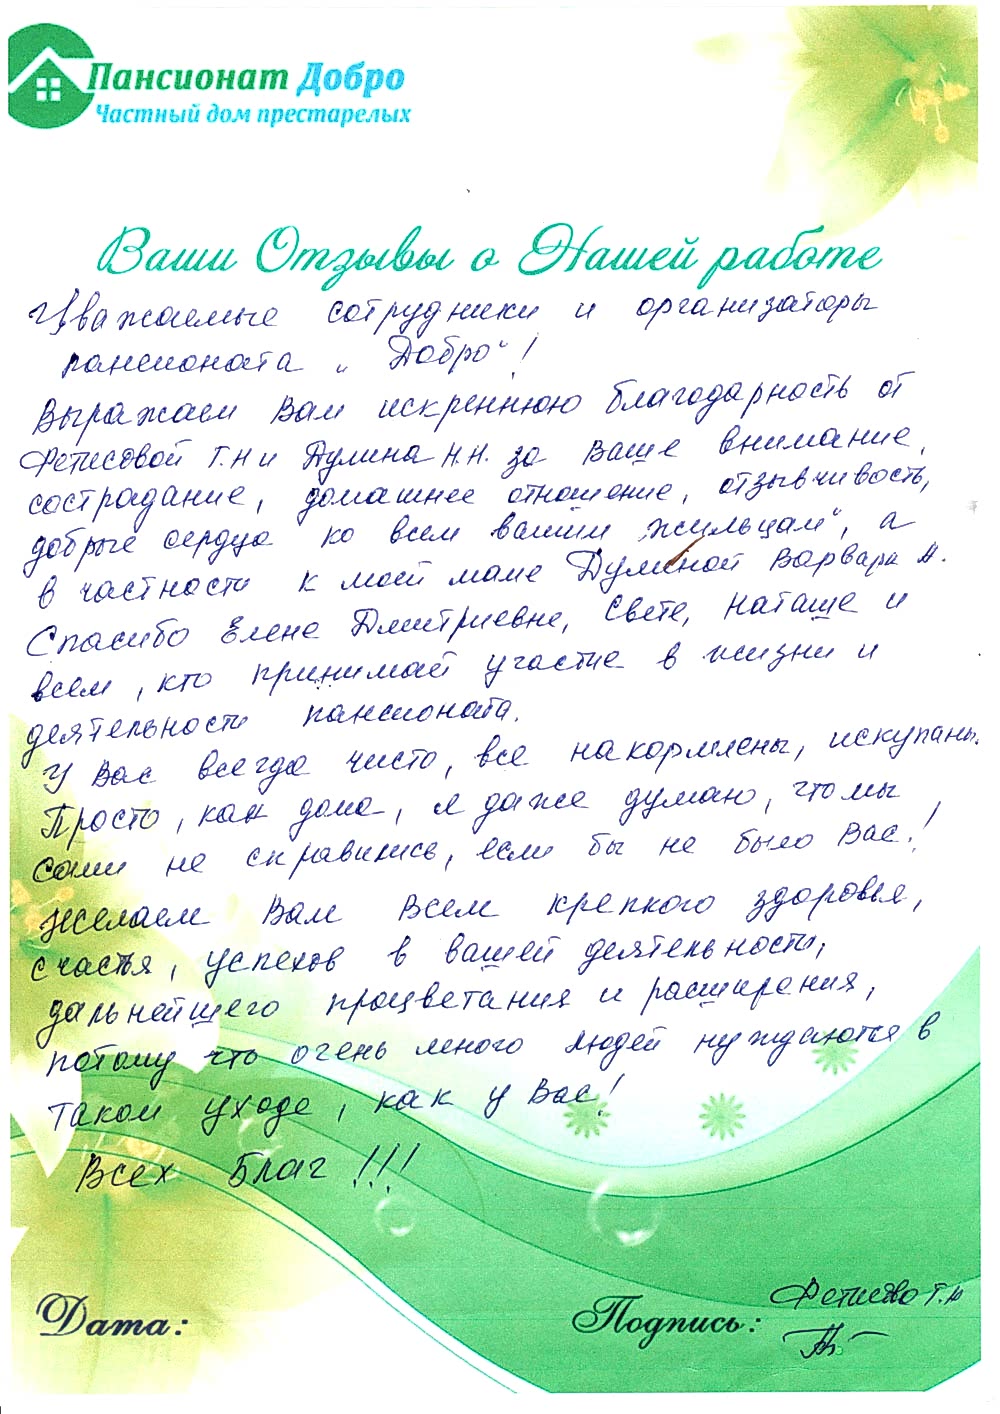 Пансионат Добро
Частный дом престарелых
Ваши Отзывы о Нашей работе
Уважаемые сотрудники и организаторы
пансионата „Добро"!
Выражаем Вам искреннюю благодарность от
Фетисовой Т.Н и Дулина Н.Н. за Ваше внимание,
сострадание, домашнее отношение, отзывчивость,
добрые сердца ко всем вашим „жильцам", а
в частности к моей маме Дулиной Варваре А.
Спасибо Елене Дмитриевне, Свете, Наташе и
всем, кто принимает участие в жизни и
деятельности пансионата.
У Вас всегда чисто, все накормлены, искупаны.
Просто, как дома, я даже думаю, что мы
сами не справились, если бы не было Вас!
Желаем Вам Всем крепкого здоровья,
счастья, успехов в вашей деятельности,
дальнейшего процветания и расширения,
потому что очень много людей нуждаются в
таком уходе, как у Вас!
Всех Благ!!!
Дата:
Подпись: Фетисова Т.Н